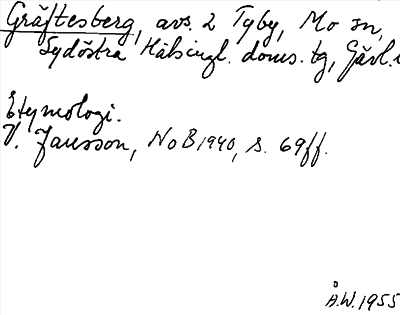 Gräftesberg, avs. 2 Tyby, Mo sn,
Sydöstra Hälsingl. doms. tg, Gävl.
Etymologi.
V. Jansson, NoB 1940, s. 69ff.
Å.W. 1955